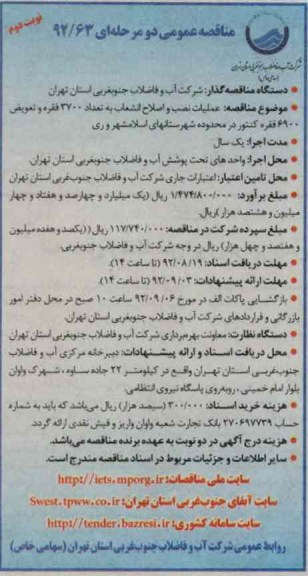 نوبت دوم
مناقصه عمومی دو مرحله‌ای ۹۲/۶۳
شرکت آب و فاضلاب جنوبغربی استان تهران
(سهامی خاص)
• دستگاه مناقصه‌گذار: شرکت آب و فاضلاب جنوبغربی استان تهران
• موضوع مناقصه: عملیات نصب و اصلاح انشعاب به تعداد ۳۷۰۰ فقره و تعویض
۶۹۰۰ فقره کنتور در محدوده شهرستانهای اسلامشهر و ری
• مدت اجرا: یک سال
• محل اجرا: واحد های تحت پوشش آب و فاضلاب جنوبغربی استان تهران
• محل تامین اعتبار: اعتبارات جاری شرکت آب و فاضلاب جنوبغربی استان تهران
• مبلغ برآورد: ۱/۴۷۴/۸۰۰/۰۰۰ ریال (یک میلیارد و چهارصد و هفتاد و چهار
میلیون و هشتصد هزار) ریال.
• مبلغ سپرده شرکت در مناقصه: ۱۱۷/۷۴۰/۰۰۰ ریال ((یکصد و هفده میلیون
و هفتصد و چهل هزار) ریال در وجه شرکت آب و فاضلاب جنوبغربی.
• مهلت دریافت اسناد: ۹۲/۰۸/۱۹ (تا ساعت ۱۴).
• مهلت ارائه پیشنهادات: ۹۲/۰۹/۰۳ (تا ساعت ۱۴).
• بازگشایی پاکات الف در مورخ ۹۲/۰۹/۰۶ ساعت ۱۰ صبح در محل دفتر امور
بازرگانی و قراردادهای شرکت آب و فاضلاب جنوبغربی استان تهران.
• دستگاه نظارت: معاونت بهره‌برداری شرکت آب و فاضلاب جنوبغربی استان تهران
• محل دریافت اسناد و ارائه پیشنهادات: دبیرخانه مرکزی آب و فاضلاب
جنوب‌غربی استان تهران واقع در کیلومتر ۲۲ جاده ساوه، شهرک واوان
بلوار امام خمینی، روبه‌روی پاسگاه نیروی انتظامی.
• هزینه خرید اسناد: ۳۰۰/۰۰۰ (سیصد هزار) ریال می‌باشد که باید به شماره
حساب ۲۷۰۶۹۷۷۳۹ بانک تجارت شعبه واوان واریز و فیش نقدی ارائه گردد.
• هزینه درج آگهی در دو نوبت به عهده برنده مناقصه می‌باشد.
• سایر اطلاعات و جزئیات مربوط در اسناد مناقصه مندرج است.
سایت ملی مناقصات: http://iets.mporg.ir
سایت آبفای جنوب‌غربی استان تهران: Swest.tpww.co.ir
سایت سامانه کشوری: http://tender.bazresi.ir
روابط عمومی شرکت آب و فاضلاب جنوب‌غربی استان تهران (سهامی خاص)